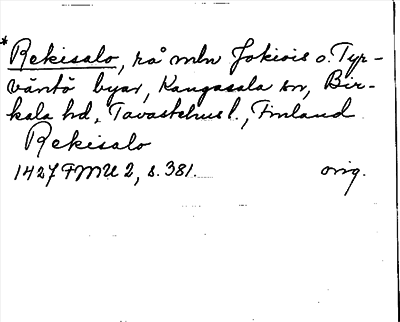 * Rekisalo, rå mln Jokiois o. Tyr-
väntö byar, Kangasala sn, Bir-
kala hd, Tavastehus l., Finland
Rekisalo
1427 FMU 2, s. 381. orig.